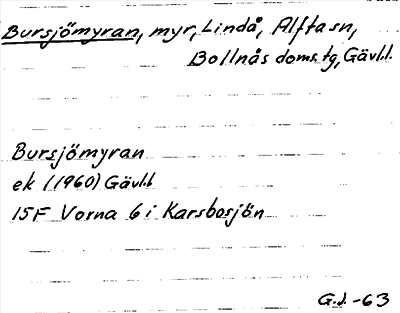 Bursjömyran, myr, Lindå, Alfta sn,
Bollnäs doms. tg, Gävl.l.
Bursjömyran
ek (1960) Gävl.l
15F Vorna 6 i Karsbosjön
G.J. -63